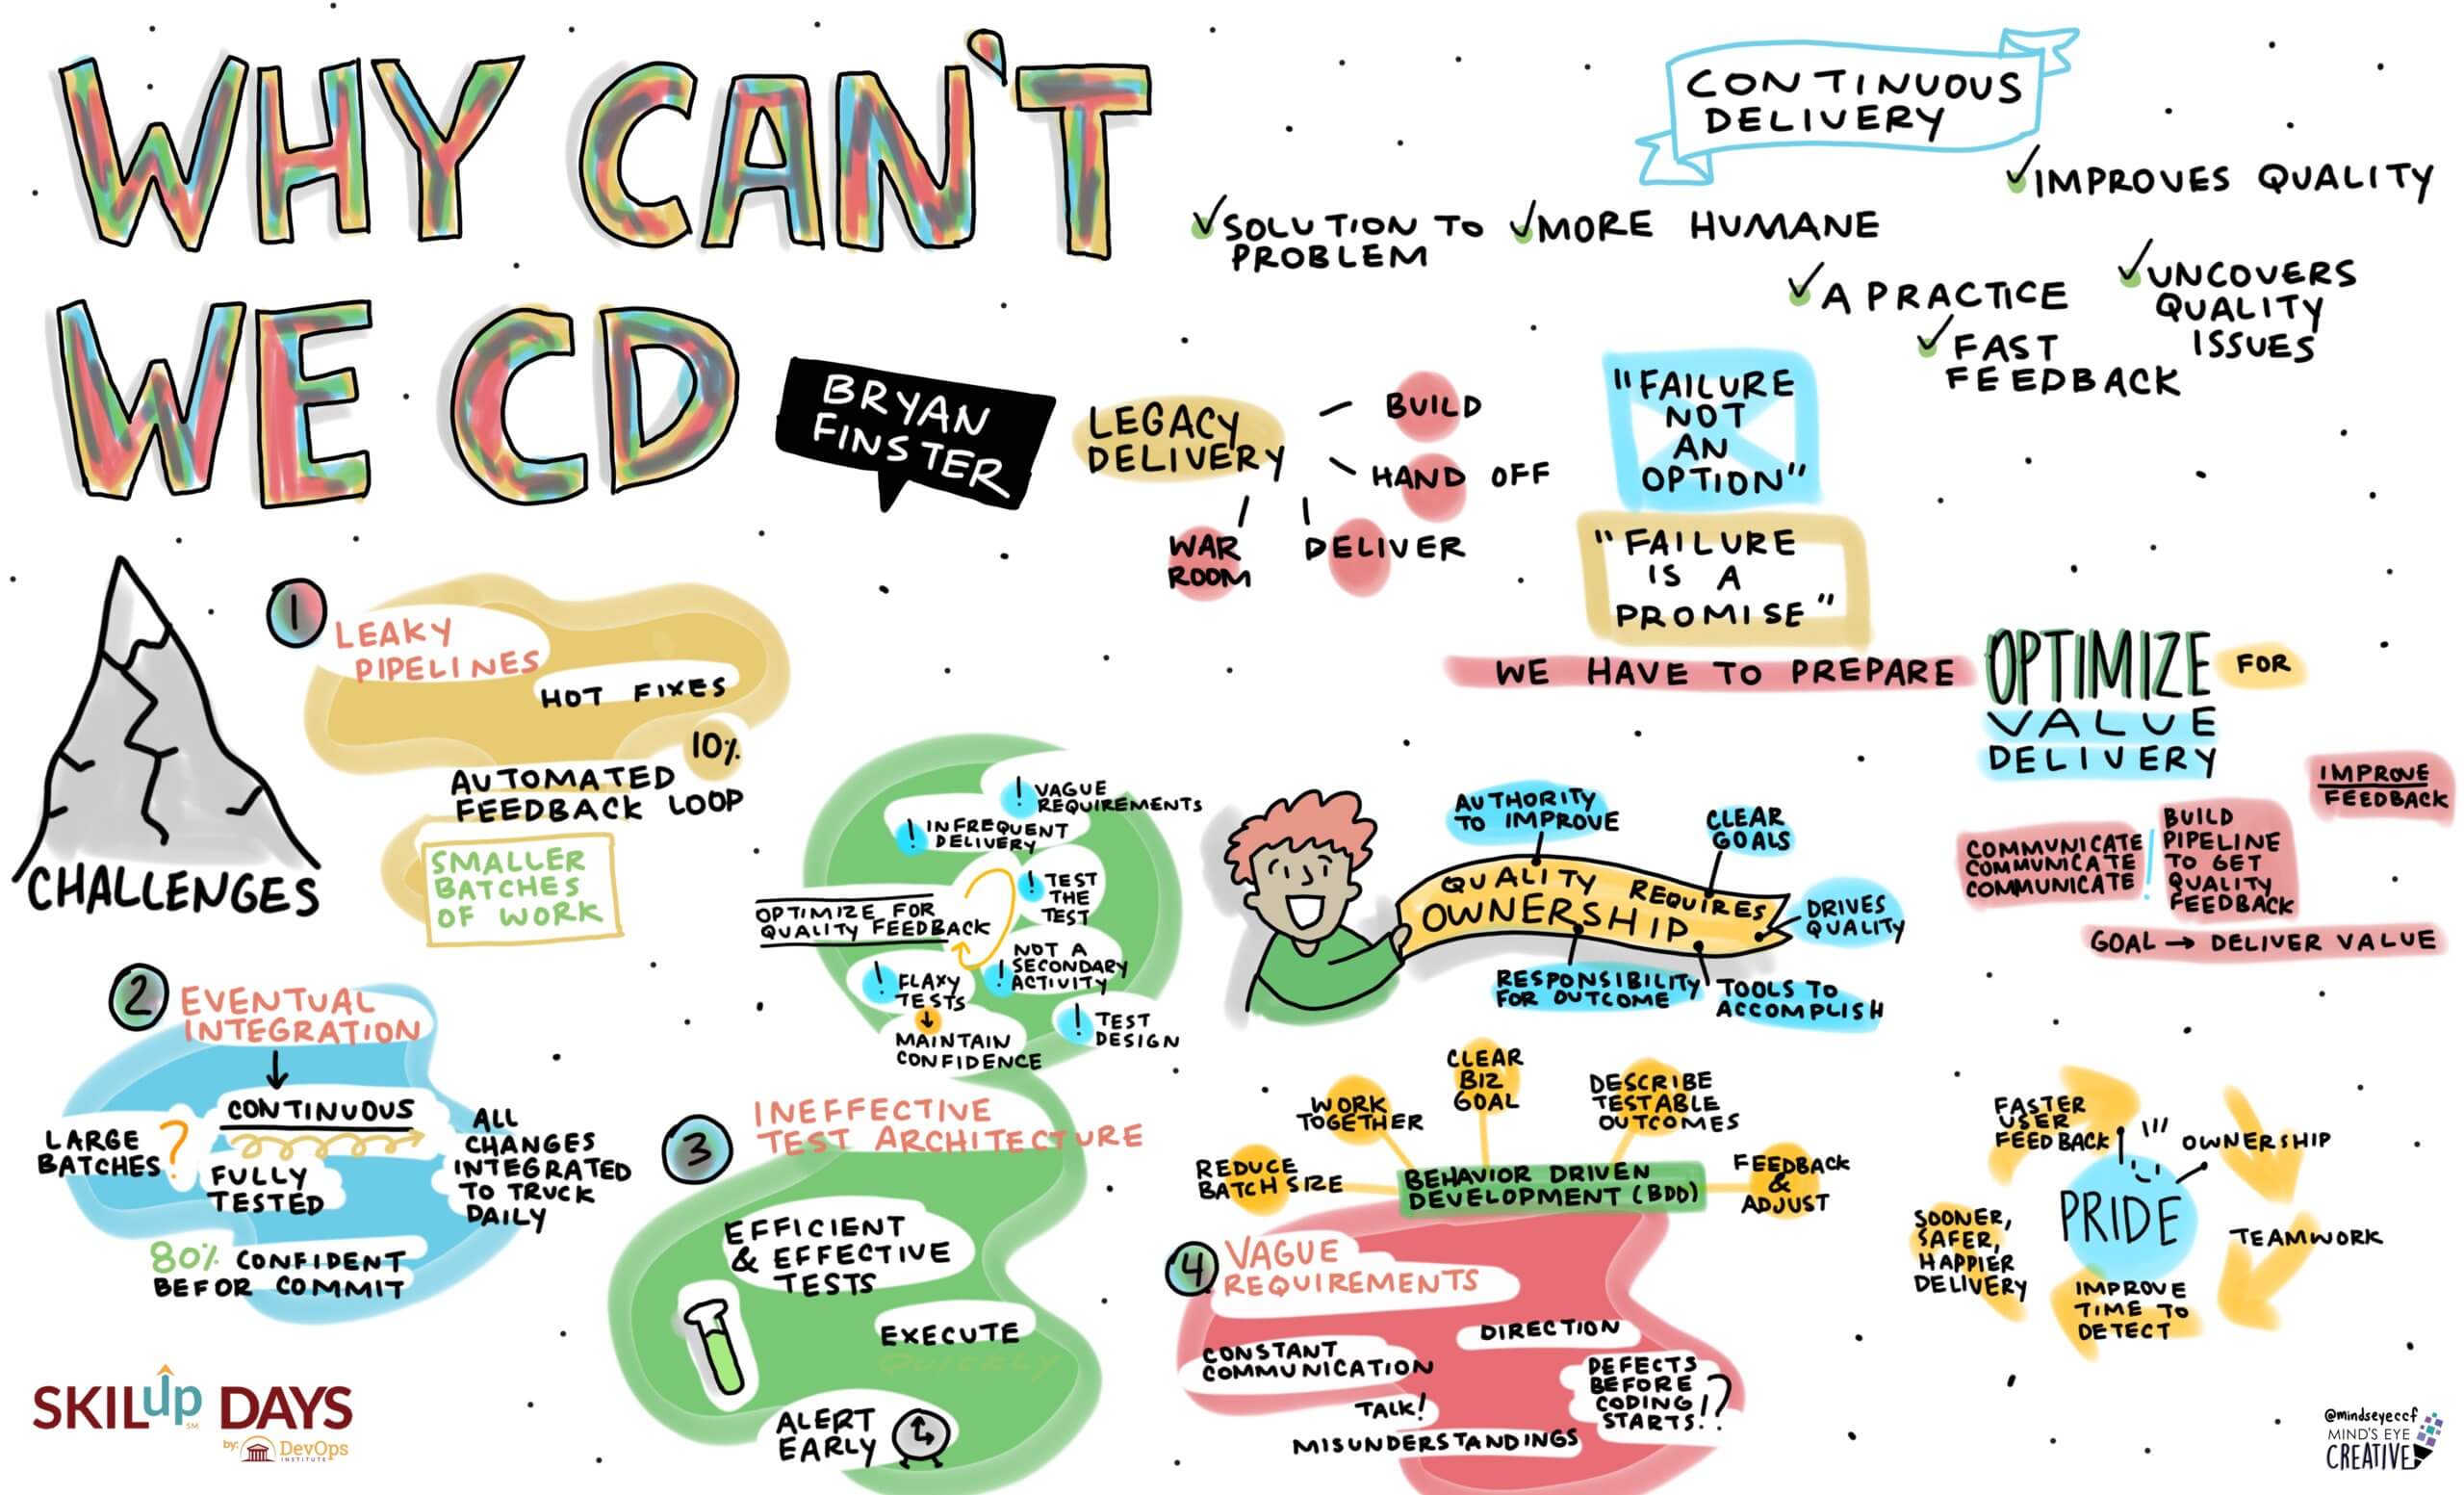 WHY CAN'T
WE CD
BRYAN
FINSTER
CONTINUOUS
DELIVERY
SOLUTION TO
PROBLEM
MORE HUMANE
IMPROVES QUALITY
A PRACTICE
FAST
FEEDBACK
UNCOVERS
QUALITY
ISSUES
LEGACY
DELIVERY
BUILD
HAND OFF
DELIVER
WAR
ROOM
"FAILURE
NOT
AN
OPTION"
"FAILURE
IS A
PROMISE"
WE HAVE TO PREPARE
OPTIMIZE FOR
VALUE
DELIVERY
IMPROVE
FEEDBACK
COMMUNICATE
COMMUNICATE
COMMUNICATE
!
BUILD
PIPELINE
TO GET
QUALITY
FEEDBACK
GOAL → DELIVER VALUE
CHALLENGES
1
LEAKY
PIPELINES
HOT FIXES
10%
AUTOMATED
FEEDBACK LOOP
SMALLER
BATCHES
OF WORK
2
EVENTUAL
INTEGRATION
CONTINUOUS
LARGE
BATCHES?
FULLY
TESTED
ALL
CHANGES
INTEGRATED
TO TRUCK
DAILY
80% CONFIDENT
BEFOR COMMIT
! VAGUE
REQUIREMENTS
! INFREQUENT
DELIVERY
! TEST
THE
TEST
OPTIMIZE FOR
QUALITY FEEDBACK
! NOT A
SECONDARY
ACTIVITY
! FLAXY
TESTS
MAINTAIN
CONFIDENCE
! TEST
DESIGN
3
INEFFECTIVE
TEST ARCHITECTURE
EFFICIENT
& EFFECTIVE
TESTS
EXECUTE
QUICKLY
ALERT
EARLY
AUTHORITY
TO IMPROVE
CLEAR
GOALS
QUALITY REQUIRES
OWNERSHIP
DRIVES
QUALITY
RESPONSIBILITY
FOR OUTCOME
TOOLS TO
ACCOMPLISH
CLEAR
BIZ
GOAL
WORK
TOGETHER
DESCRIBE
TESTABLE
OUTCOMES
REDUCE
BATCH SIZE
BEHAVIOR DRIVEN
DEVELOPMENT (BDD)
FEEDBACK
&
ADJUST
4
VAGUE
REQUIREMENTS
DIRECTION
CONSTANT
COMMUNICATION
TALK!
DEFECTS
BEFORE
CODING
STARTS!?
MISUNDERSTANDINGS
FASTER
USER
FEEDBACK
OWNERSHIP
PRIDE
TEAMWORK
IMPROVE
TIME TO
DETECT
SOONER,
SAFER,
HAPPIER
DELIVERY
SKILup DAYS
SM
by: DevOps
INSTITUTE
@mindseyeccf
MIND'S EYE
CREATIVE